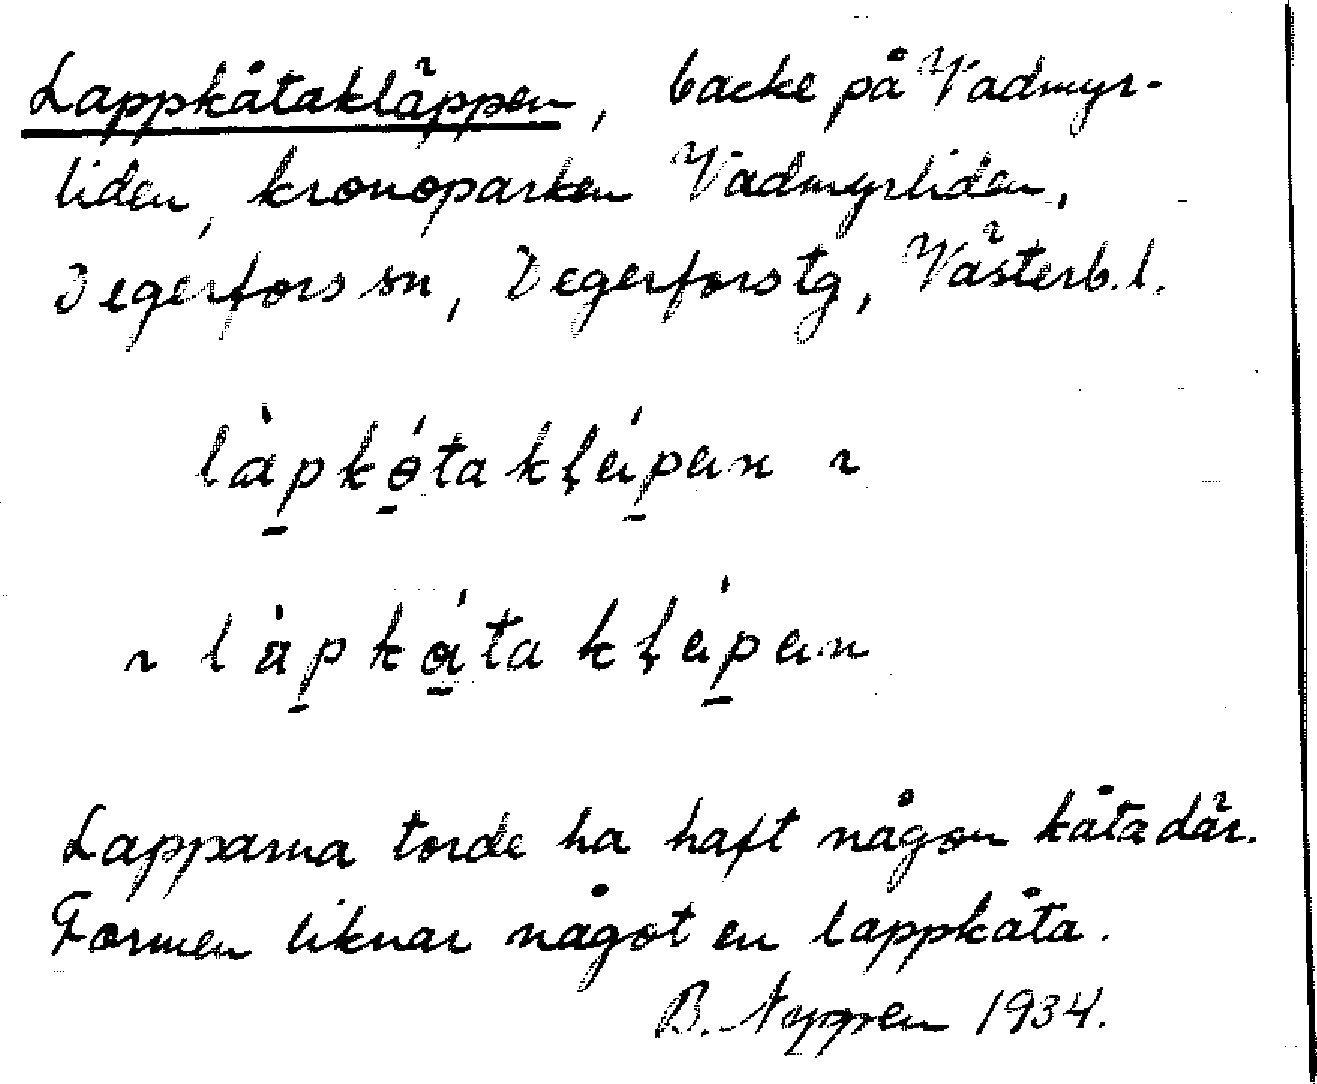 Lappkåtakläppen, backe på Vadmyr-
liden, kronoparken Vadmyrliden,
Degerfors sn, Degerfors tg, Västerb. l.
làpkǫ́taklépen ~
~ làpkątakļépen
Lapparna torde ha haft någon kåta där.
Formen liknar något en lappkåta.
B. Nyppen 1934.